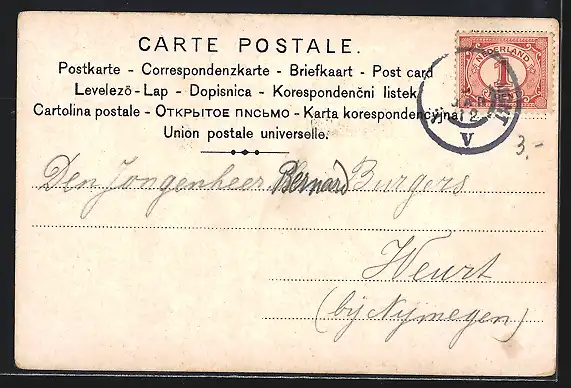 CARTE POSTALE.
Postkarte - Correspondenzkarte - Briefkaart - Post card
Levelező-Lap - Dopisnica - Korespondenční listek
Cartolina postale - Открытое письмо - Karta korespondencyjna
Union postale universelle.
NEDERLAND
1
12
V
3.-
Den Jongenheer Bernard Burgers
Weurt
(bij Nymegen)